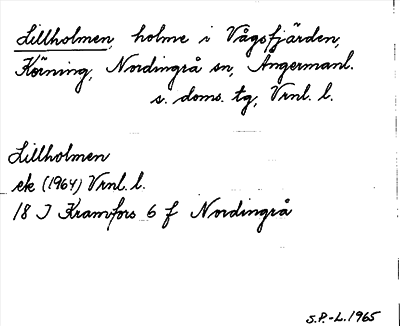 Lillholmen, holme i Vågsfjärden,
Körning, Nordingrå sn, Ångermanl.
s. doms. tg, Vrnl. l.
Lillholmen
ek (1964) Vrnl. l.
18 J Kramfors 6 f Nordingrå
S.P.-L. 1965